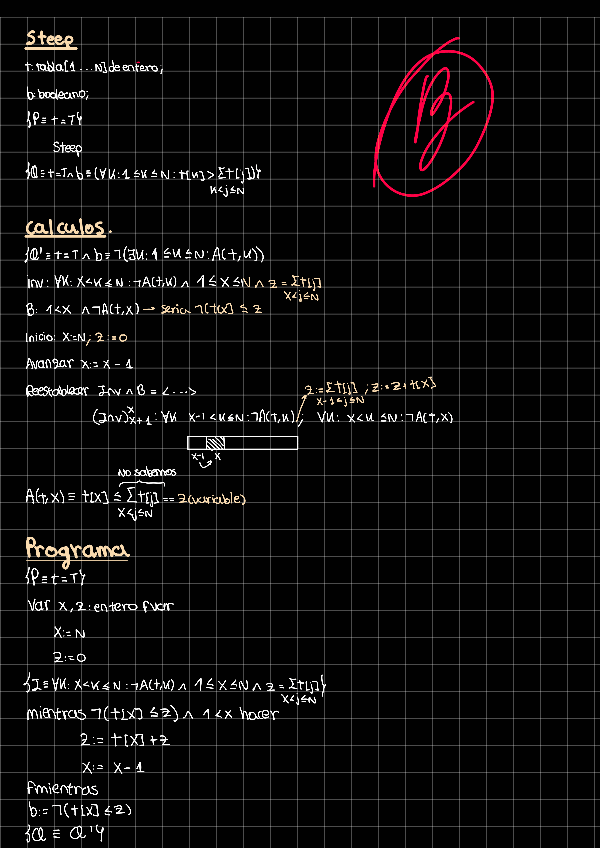 Steep
t: tabla[1...N] de entero;
b: booleano;
{P ≡ t=T}
Steep
{Q ≡ t=T ∧ b ≡ (∀k: 1≤k≤N : t[k] > Σt[j])}
k<j≤N
B
Calculos.
{Q' ≡ t=T ∧ b ≡ ¬(∃k: 1≤k≤N: A(t,k))
Inv: ∀k: x<k≤N : ¬A(t,k) ∧ 1≤x≤N ∧ z = Σt[j]
x<j≤N
B: 1<x ∧ ¬A(t,x) → seria ¬(t[x] ≤ z
Inicio: x=N; z:=0
Avanzar x:= x-1
Reestablecer Inv ∧ B = <...>
z:= Σt[j] ; z:= z+t[x]
x-1<j≤N
(Inv)ˣₓ₊₁ : ∀k x-1<k≤N: ¬A(t,k) ; ∀k: x<k≤N: ¬A(t,x)
x-1 x
No sabemos
A(t,x) ≡ t[x] ≤ Σt[j] == z(variable)
x<j≤N
Programa
{P ≡ t=T}
Var x, z: entero fvar
x:= N
z:=0
{I ≡ ∀k: x<k≤N : ¬A(t,k) ∧ 1≤x≤N ∧ z = Σt[j]}
x<j≤N
mientras ¬(t[x] ≤z) ∧ 1<x hacer
z:= t[x]+z
x:= x-1
fmientras
b:= ¬(t[x] ≤z)
{Q ≡ Q'}